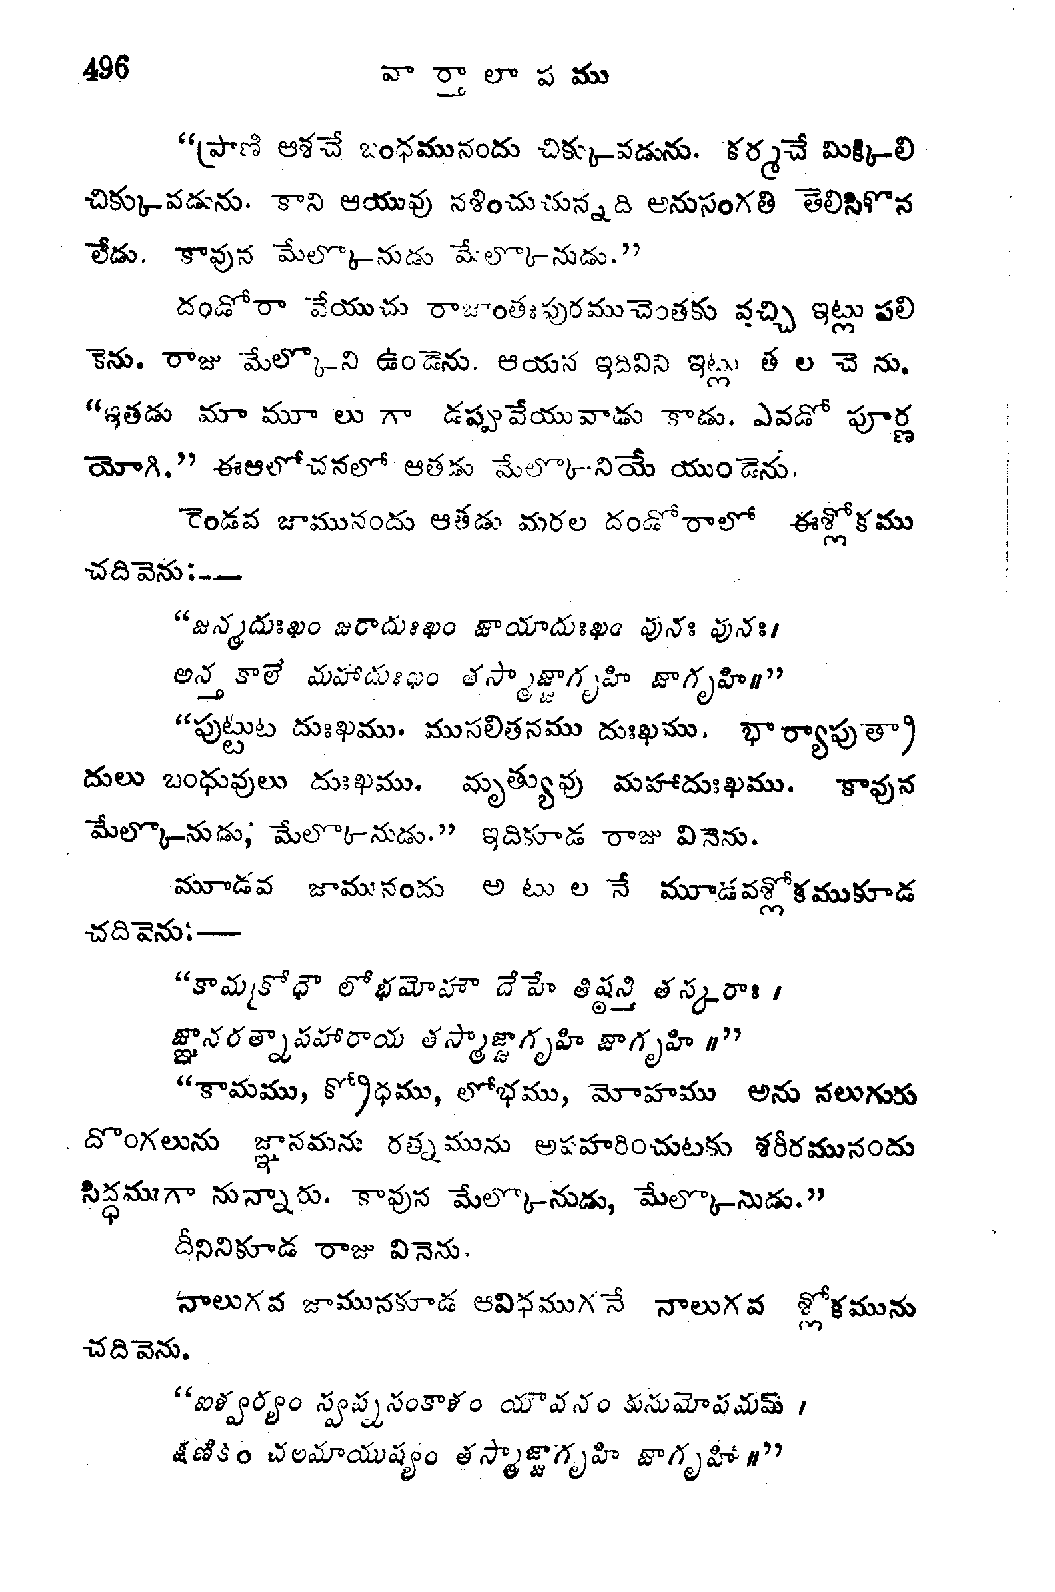 496
వా ర్తా లా ప ము
“ప్రాణి ఆశచే బంధమునందు చిక్కువడును. కర్మచే మిక్కిలి
చిక్కువడును. కాని ఆయువు నశించుచున్నది అనుసంగతి తెలిసికొన
లేడు. కావున మేల్కొనుడు మేల్కొనుడు.”
దండోరా వేయుచు రాజాంతఃపురముచెంతకు వచ్చి ఇట్లు పలి
కెను. రాజు మేల్కొని ఉండెను. ఆయన ఇదివిని ఇట్లు త ల చె ను.
“ఇతడు మా మూ లు గా డప్పువేయువాడు కాడు. ఎవడో పూర్ణ
యోగి.” ఈఆలోచనలో ఆతడు మేల్కొనియే యుండెను.
రెండవ జామునందు ఆతడు మరల దండోరాలో ఈశ్లోకము
చదివెను:-—
“జన్మదుఃఖం జరాదుఃఖం జాయాదుఃఖం పునః పునః।
అన్త కాలే మహాదుఃఖం తస్మాజ్జాగృహి జాగృహి॥”
“పుట్టుట దుఃఖము. ముసలితనము దుఃఖము. భార్యాపుత్రా
దులు బంధువులు దుఃఖము. మృత్యువు మహాదుఃఖము. కావున
మేల్కొనుడు; మేల్కొనుడు.” ఇదికూడ రాజు వినెను.
మూడవ జామునందు అ టు ల నే మూడవశ్లోకముకూడ
చదివెను:—
“కామక్రోధౌ లోభమోహౌ దేహే తిష్ఠన్తి తస్కరాః ।
జ్ఞానరత్నాపహారాయ తస్మాజ్జాగృహి జాగృహి ॥”
“కామము, క్రోధము, లోభము, మోహము అను నలుగురు
దొంగలును జ్ఞానమను రత్నమును అపహరించుటకు శరీరమునందు
సిద్ధముగా నున్నారు. కావున మేల్కొనుడు, మేల్కొనుడు.”
దీనినికూడ రాజు వినెను.
నాలుగవ జామునకూడ ఆవిధముగనే నాలుగవ శ్లోకమును
చదివెను.
“ఐశ్వర్యం స్వప్నసంకాశం యౌవనం కుసుమోపమమ్ ।
క్షణికం చలమాయుష్యం తస్మాజ్జాగృహి జాగృహి ॥”